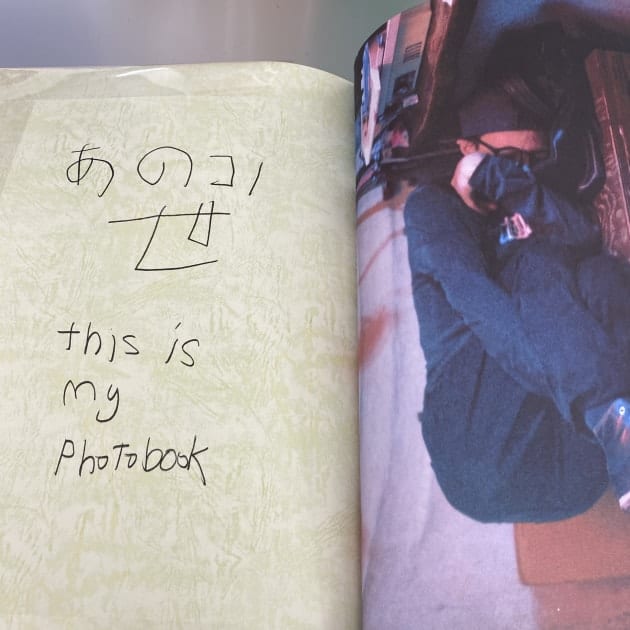 あのコノ
せ
this is
my
PhoTobook